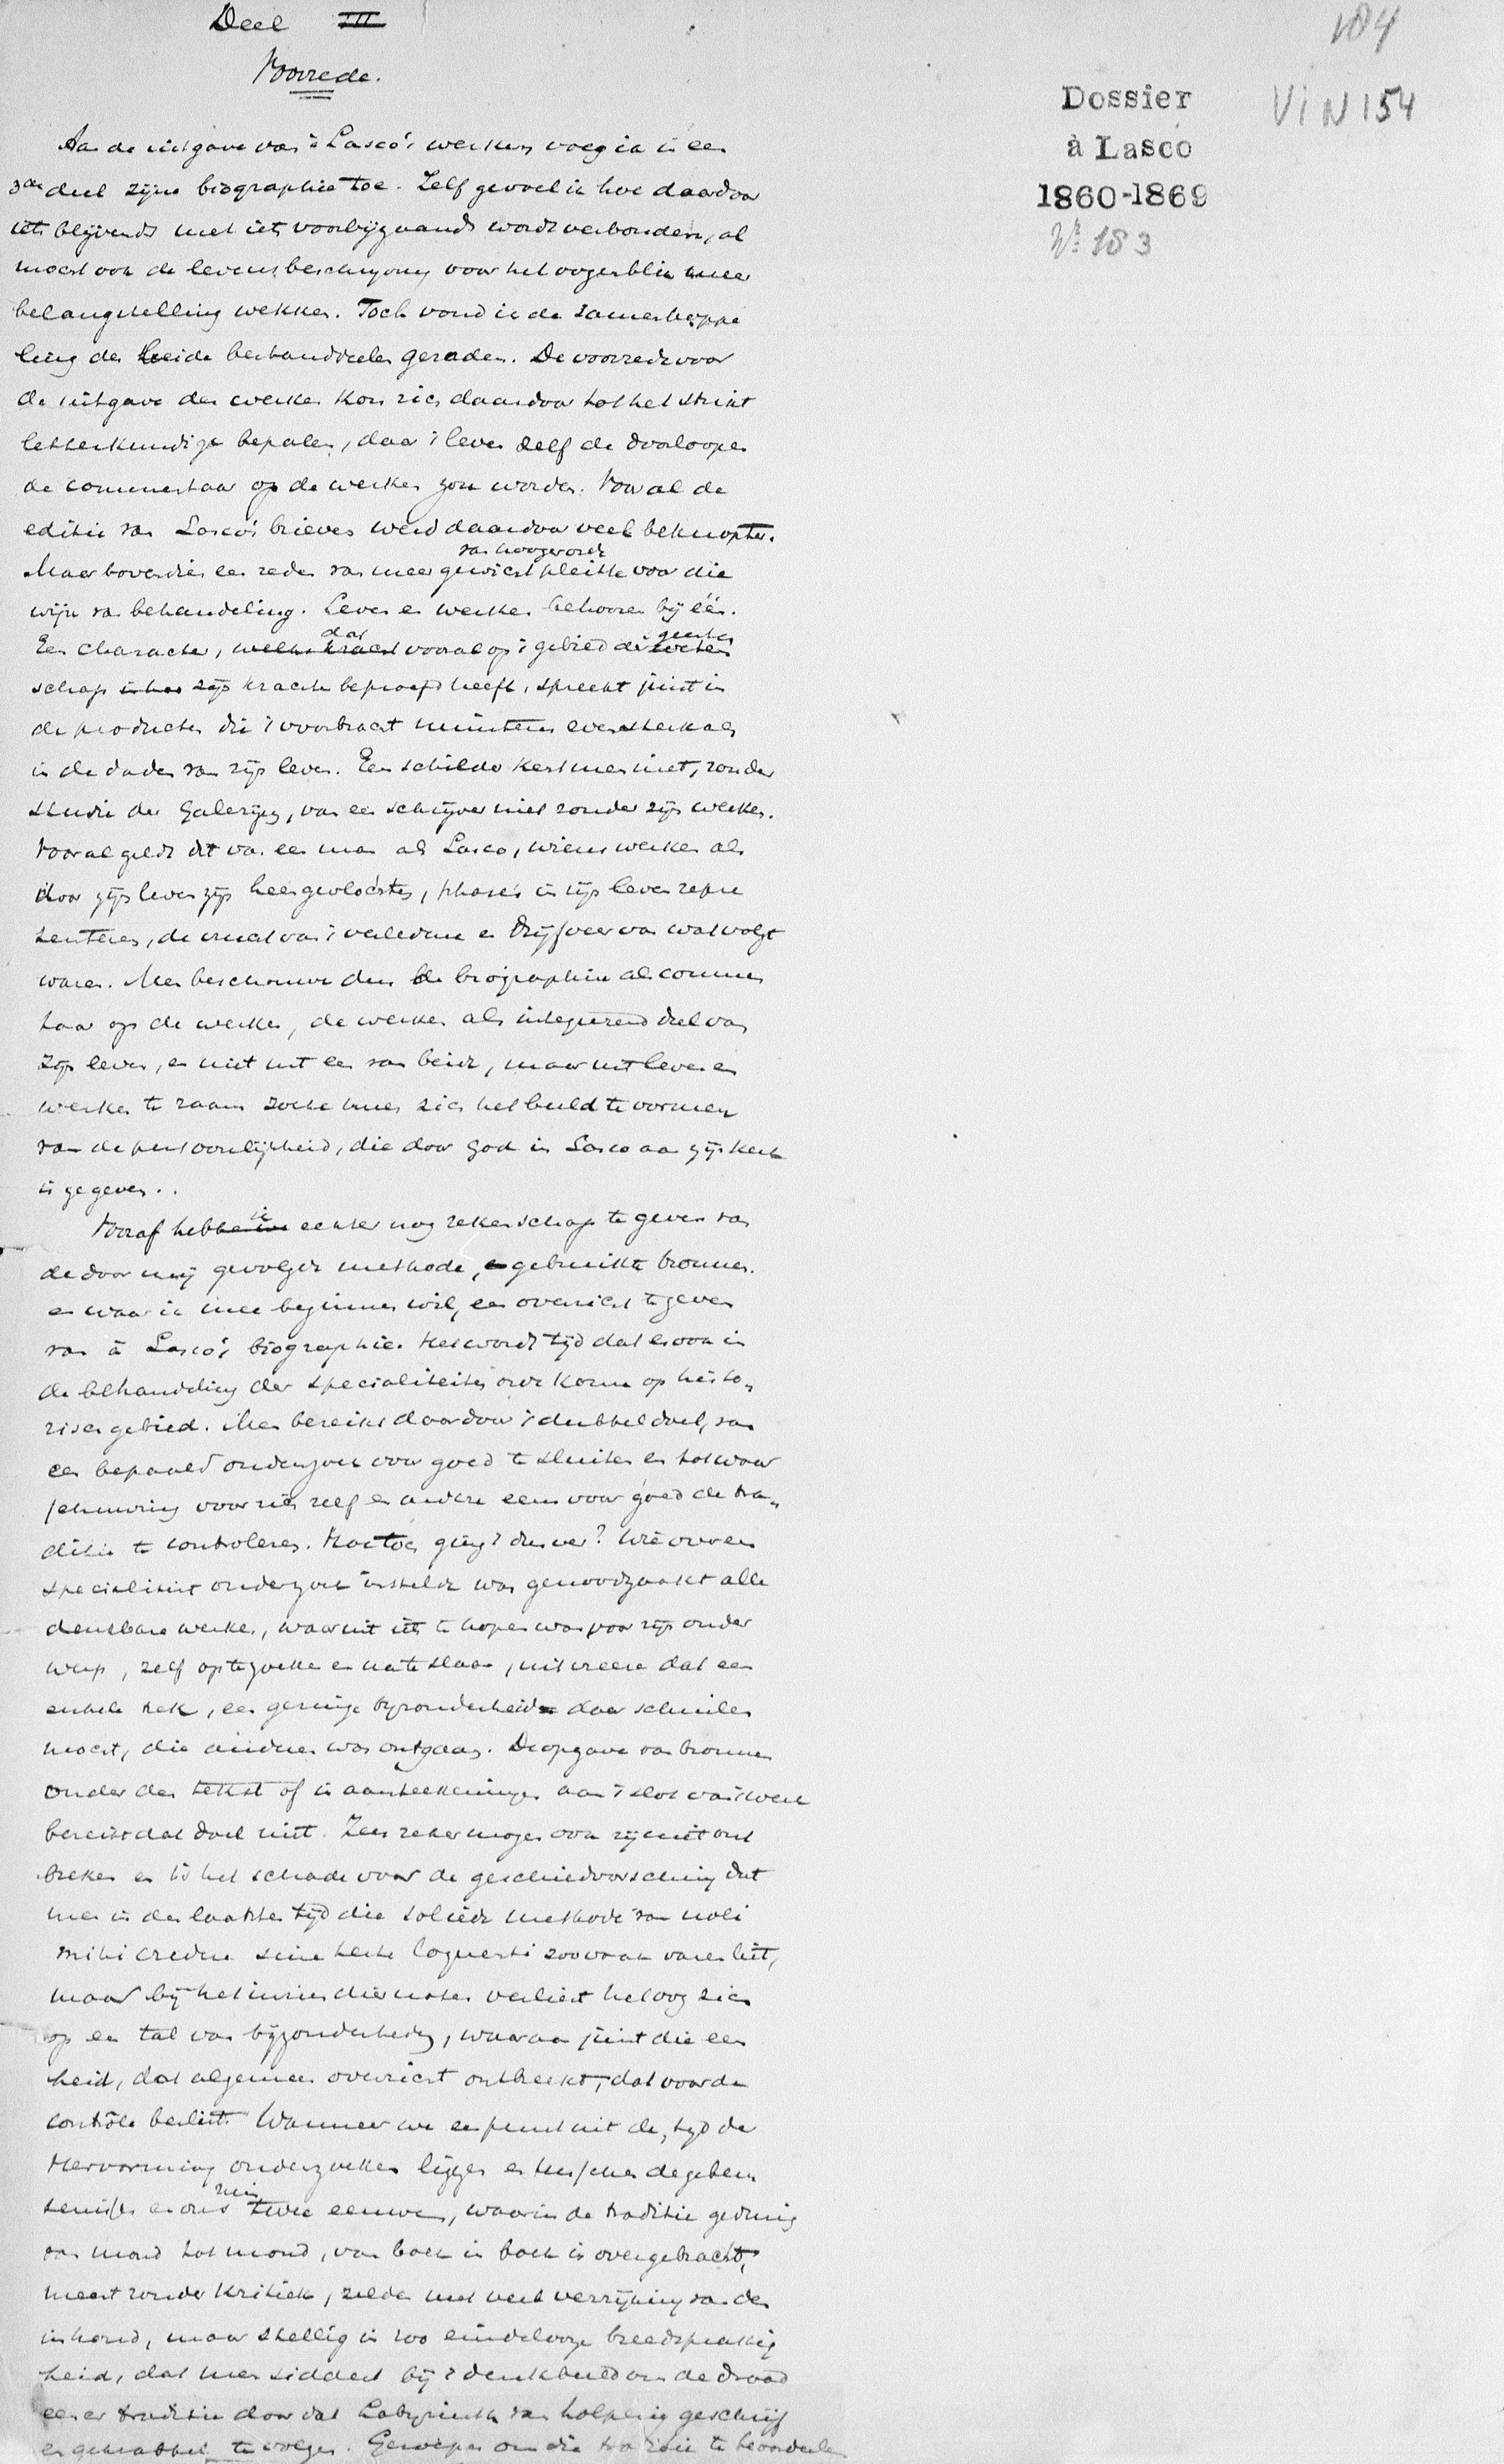 Deel III
Voorrede.
184
Dossier
à Lasco
1860-1869
VIN154
No 183
Aan de uitgave van à Lasco's werken voeg ik in een
3de deel zijne biographie toe. Zelf gevoel ik hoe daardoor
iets blijvends met iets voorbijgaands wordt verbonden, al
moest ook de levensbeschrijving voor het oogenblik meer
belangstelling wekken. Toch vond ik de zamenkoppe
ling der beide bestanddeelen geraden. De voorrede voor
de uitgave der werken kon zich daardoor tot het strikt
letterkundige bepalen, daar 't leven zelf de doorloopen
de commentaar op de werken zou worden. Vooral de
editie van Lasco's brieven werd daardoor veel beknopter.
van hooger orde
Maar bovendien een reden van meer gewicht pleitte voor die
wijze van behandeling. Leven en werken behooren bij één.
dat geestes
Een character, welks kracht vooral op 't gebied der weten
schap zijn kracht beproefd heeft, spreekt juist in
de producten die 't voortbracht minstens even sterk als
in de daden van zijn leven. Een schilder kent men niet, zonder
studie der Galerijen, van een schrijver niet zonder zijn werken.
Vooral geldt dit van een man als Lasco, wiens werken als
door zijn leven zijn heengevlochten, phasen in zijn leven repre
senteren, de vrucht van 't verledene en drijfveer van wat volgt
waren. Men beschouwe dus de biographie als commen
taar op de werken, de werken als integrerend deel van
zijn leven, en niet uit een van beide, maar uit leven en
werken te zaam zoeke men zich het beeld te vormen
van de persoonlijkheid, die door God in Lasco aan zijn kerk
is gegeven..
ik
Vooraf hebbe echter nog rekenschap te geven van
de door mij gevolgde methode, en gebruikte bronnen.
en waar ik mee beginnen wil, een overzicht te geven
van à Lasco's biographie. Het wordt tijd dat er ook in
de behandeling der specialiteiten orde kome op histo-
risch gebied. Men bereikt daardoor 't dubbel doel, van
een bepaald onderzoek voor goed te sluiten en tot waar
schuwing voor zich zelf en andere eens voor goed de tra-
ditie te controleren. Hoe toch ging 't dusver? Wie over een
specialiteit onderzoek instelde was genoodzaakt alle
denkbare werken, waaruit iets te hopen was voor zijn onder
werp, zelf op te zoeken en na te slaan, uit vreeze dat een
enkele trek, een geringe bijzonderheid daar schuilen
mocht, die anderen was ontgaan. De opgave van bronnen
onder den tekst of in aanteekeningen aan 't slot van 't werk
bereikt dat doel niet. Zeer zeker mogen ook zij niet ont
breken en is het schade voor de geschiedvorsching dat
men in den laatsten tijd die soliede methode van noli
mihi credere sine teste loquenti zoo vaak varen liet,
maar bij het inzien dier noten verliest het oog zich
op een tal van bijzonderheden, waaraan juist die een
heid, dat algemeen overzicht ontbreekt, dat voor de
contrôle beslist. Wanneer we een punt uit de tijd der
Hervorming onderzoeken liggen er tusschen de gebeur
ruim
tenissen en ons twee eeuwen, waarin de traditie gedurig
van mond tot mond, van boek in boek is overgebracht,
meest zonder kritiek, zelden met veel verrijking van den
inhoud, maar stellig in zoo eindelooze breedsprakig
heid, dat men siddert bij 't denkbeeld om de draad
eener traditie door dat Labyrinth van geschrijf
en gekrabbel te volgen. Geroepen om die traditie te beoordeelen